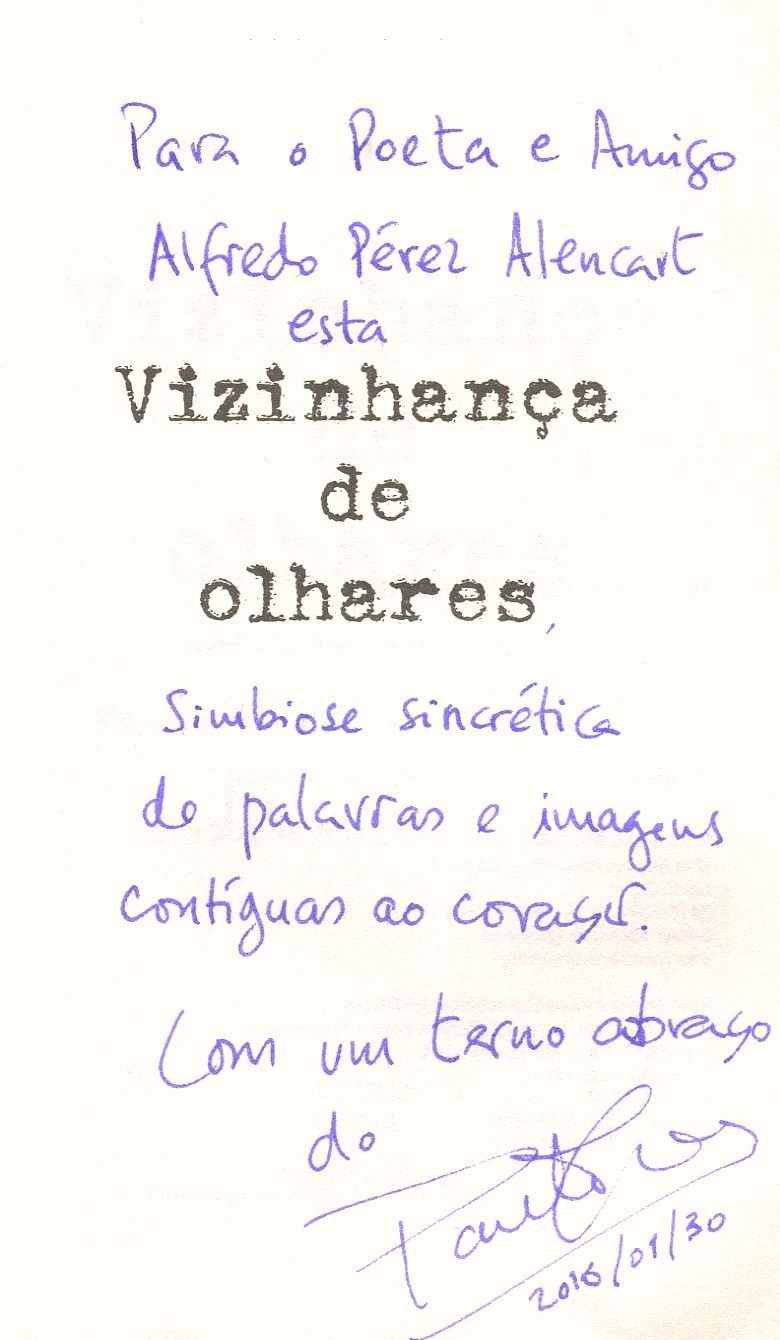 Para o Poeta e Amigo
Alfredo Pérez Alencart
esta
Vizinhança
de
olhares,
Simbiose sincrética
de palavras e imagens
contíguas ao coração.
Com um terno abraço
do
2016/01/30